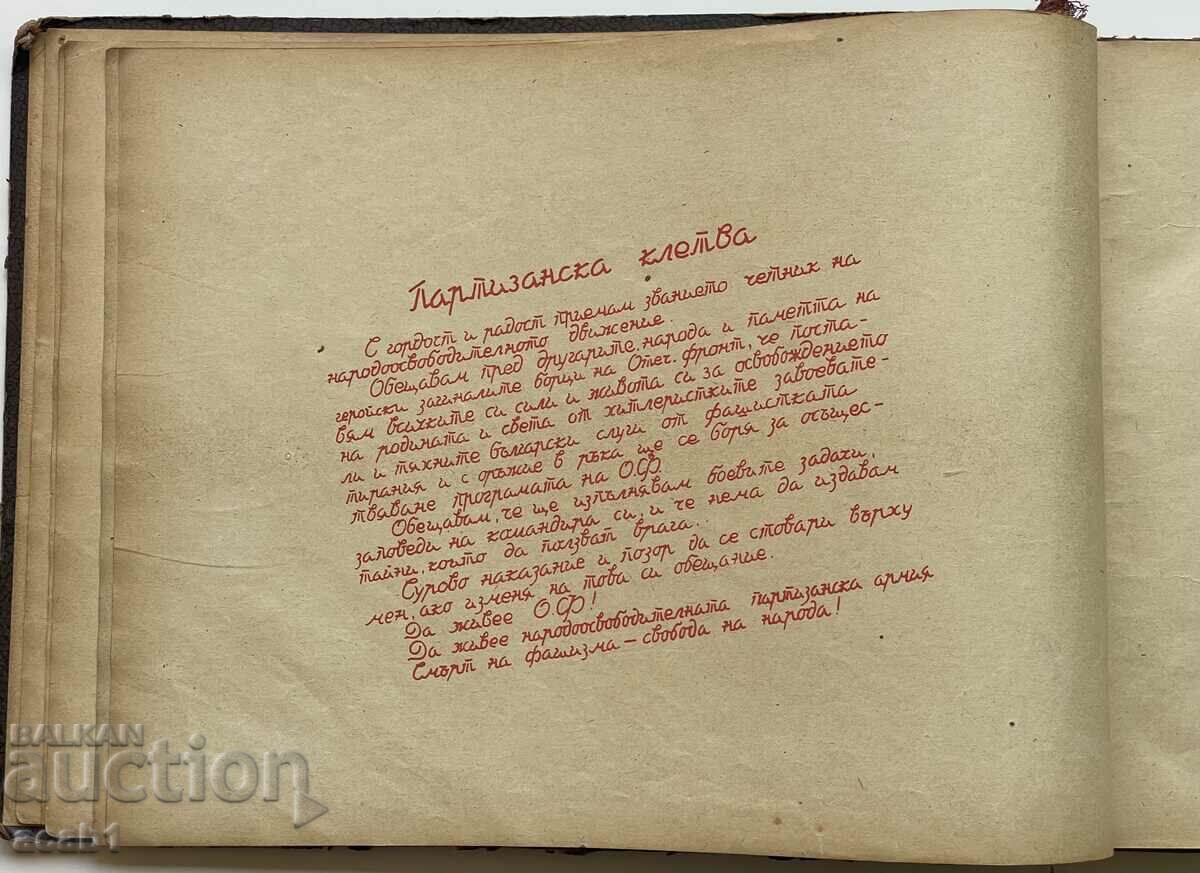 Партизанска клетва
С гордост и радост приемам званието четник на
народоосвободителното движение.
Обещавам пред другарите, народа и паметта на
геройски загиналите борци на Отеч. фронт, че поста-
вям всичките си сили и живота си за освобождението
на родината и света от хитлеристките завоевате-
ли и тяхните български слуги от фашистката
тирания и с оръжие в ръка ще се боря за осъщес-
твяване програмата на О.Ф.
Обещавам, че ще изпълнявам боевите задачи,
заповеди на командира си, и че нема да издавам
тайни, които да ползват врага..
Сурово наказание и позор да се стовари върху
мен, ако изменя на това си обещание.
Да живее О.Ф!
Да живее народоосвободителната партизанска армия
Смърт на фашизма – свобода на народа!
BALKAN
auction
acab1